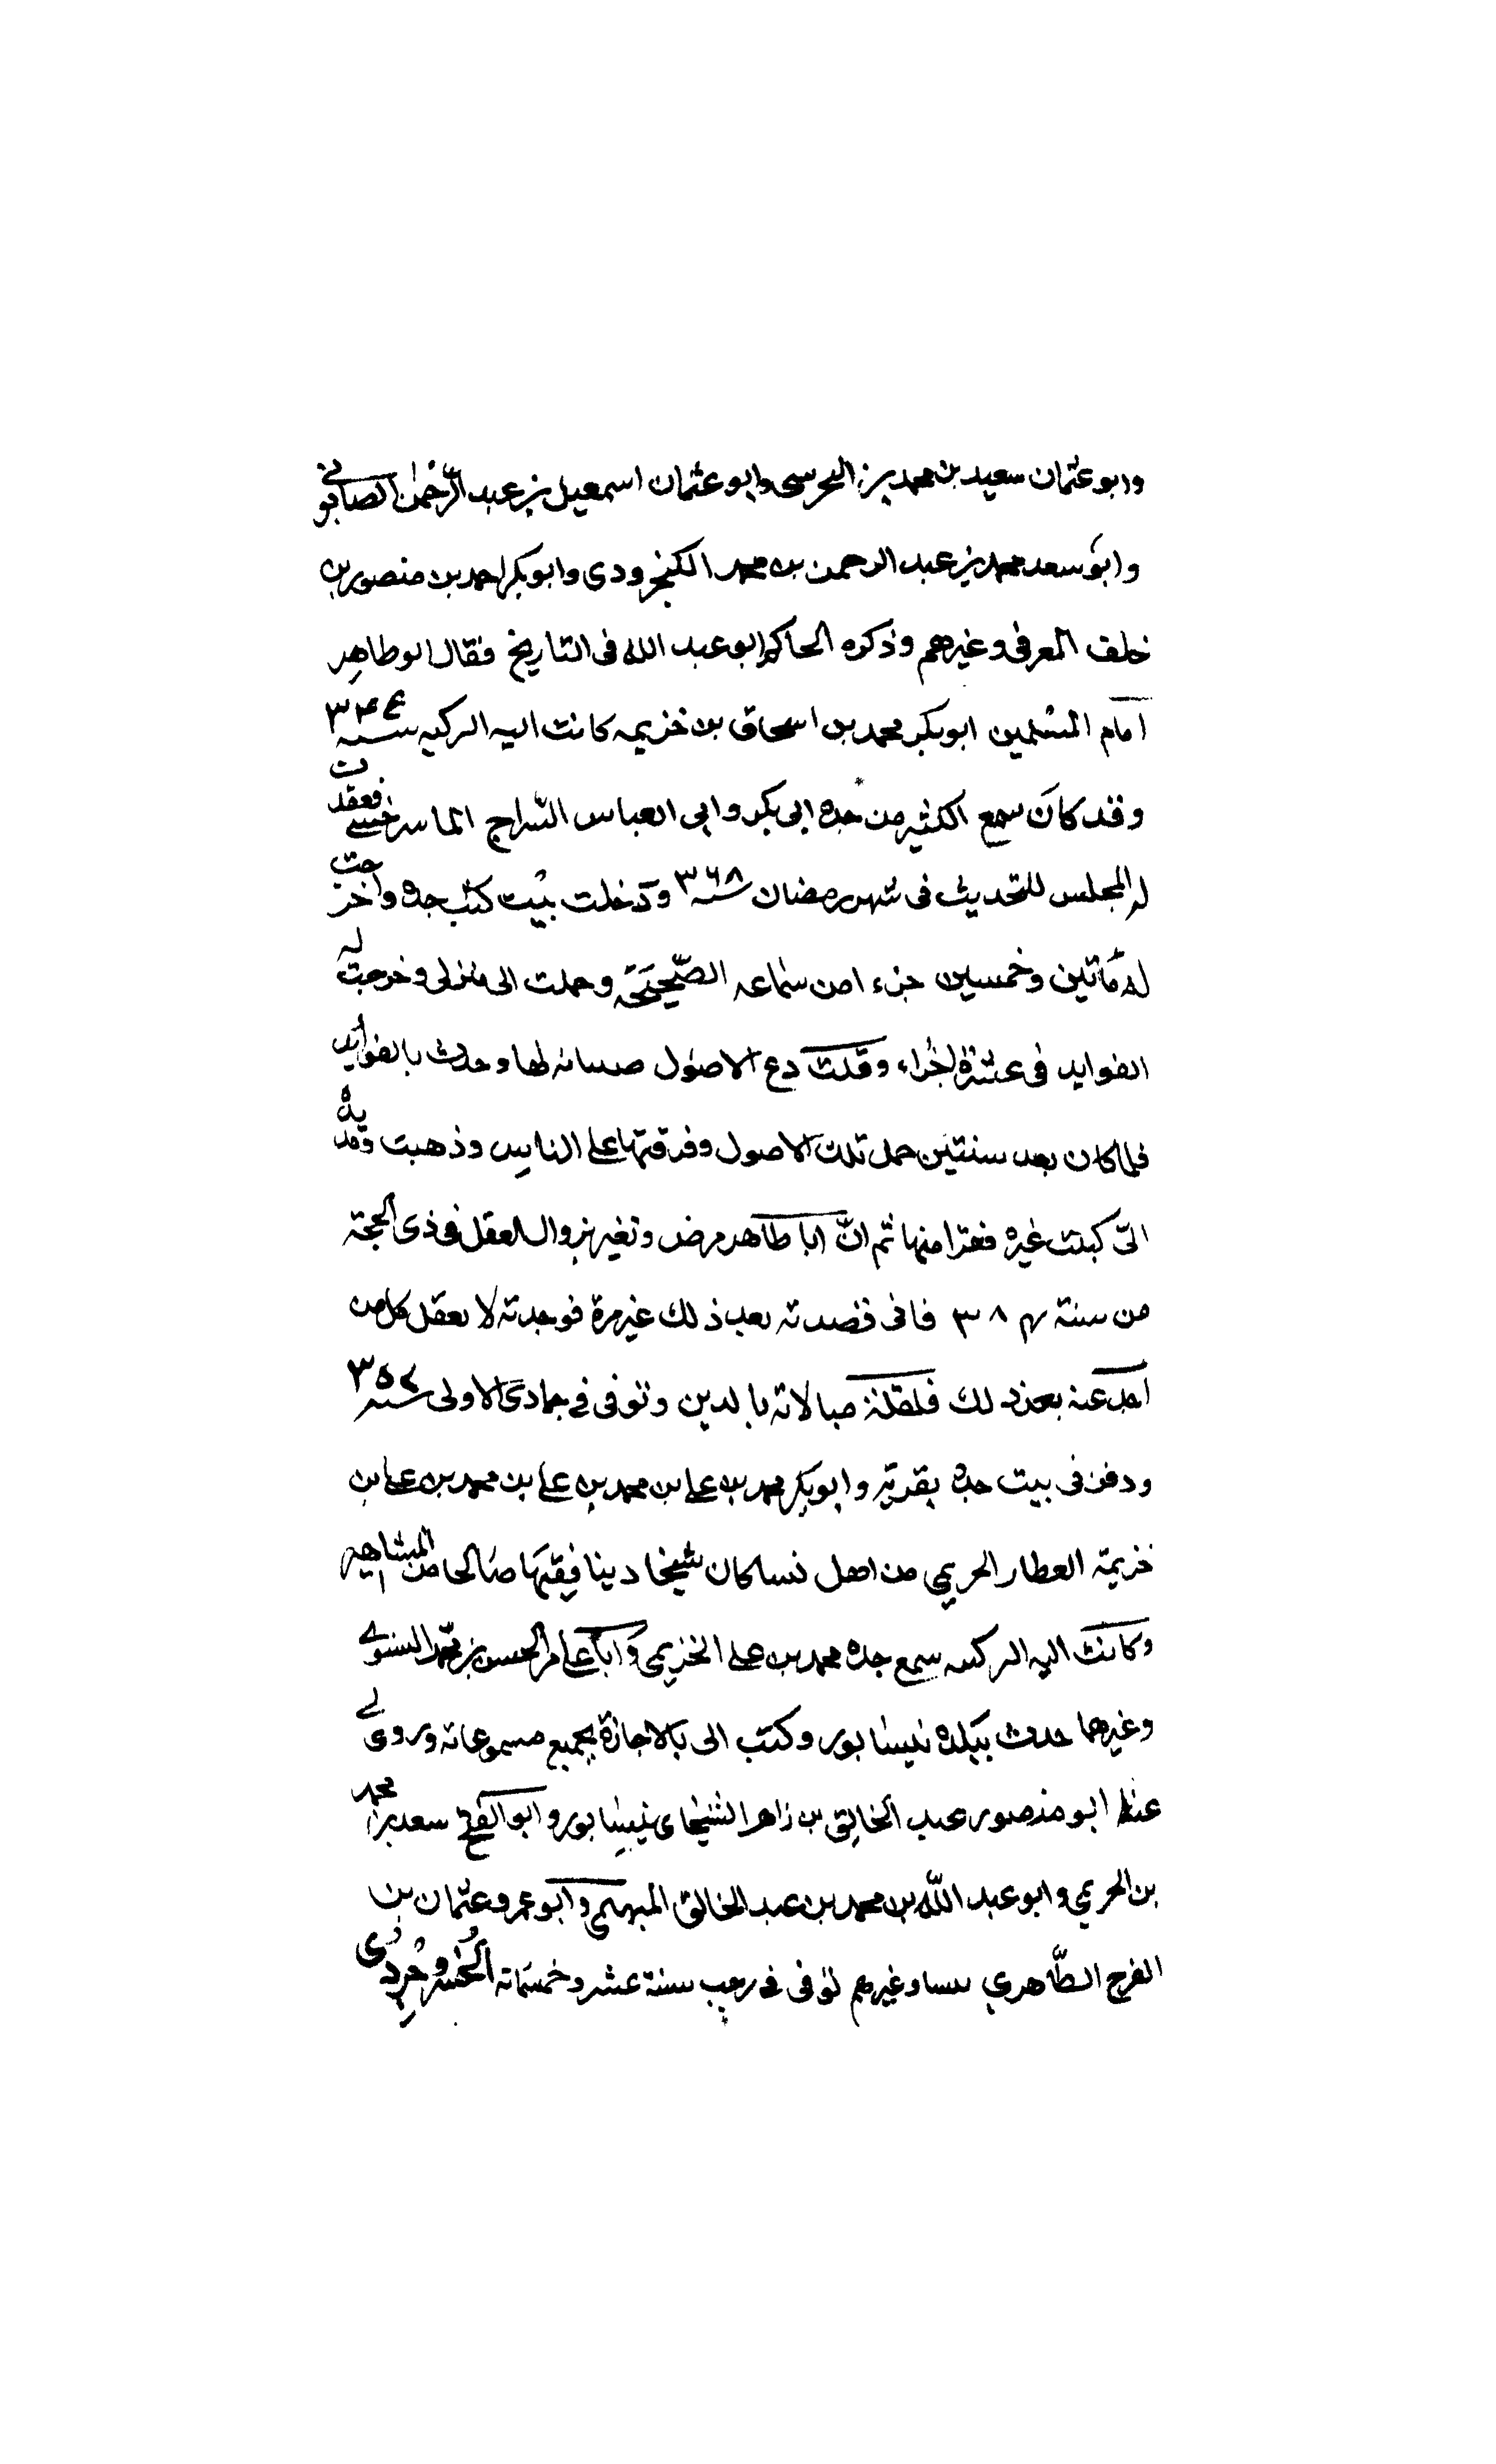 وابو عثمان سعيد بن محمد بن البحرسى وابو عثمان اسمعيل بن عبد الرحمن الصابونى
وابو سعد محمد بن عبد الرحمن بن محمد الكنجرودى وابو بكر احمد بن منصور بن
خلف المعرفى وغيرهم وذكره الحاكم ابو عبد الله فى التاريخ فقال ابو طاهر
امام المسلمين ابو بكر محمد بن اسحاق بن خزيمه كانت اليه التركيه سنه
وقد كان سمع الكثير من جده ابى بكر وابى العباس السراج الماسرخسى فعقدت
له المجلس للتحديث فى شهر رمضان سنه ٣٦٨ ودخلت بيت كتب جده واخرجت
له مأتين وخمسين جزء امن سماعه الصحيحة وحملت الى منزلى وخرجت له
الفوايد فى عشرة اجزاء وقلت دع الاصول صيانه لها وحدث بالفوايد
فلما كان بعد سنتين حمل تلك الاصول وفرقتها على الناس وذهبت وقد يده
الى كتب غيره فقرا منها ثم ان ابا طاهر مرض وتغير بزوال العقل فى ذى الحجة
من سنة ٣٨٤ فانى قصدته بعد ذلك غير مرة فوجدته لا يعقل كل من
اخذ عنه بعد ذلك فلقلة مبالاته بالدين وتوفى فى جمادى الاولى سنه
ودفن فى بيت جده بقربه وابو بكر محمد بن على بن محمد بن على بن محمد بن على بن
خزيمة العطار الحريمى من اهل نسا كان شيخا دينا فقيها صالحا من المشاهير
وكانت اليه التركيه سمع جده محمد بن على الخزيمى وابا عامر الحسن بن محمد النسوى
وغيرهما حدث ببلده نيسابور وكتب الى بالاجازة بجميع مسموعاته وروى لى
عنه ابو منصور عبد الخالق بن زاهر الشحاى بنيسابور وابو الفتح سعد بن محمد
بن الحريمى وابو عبد الله بن محمد بن عبد الخالق وابو عمرو عثمان بن
الفرج الطاهرى بنسا وغيرهم توفى فى رجب سنة عشر وخمسمائة الخسروجردى